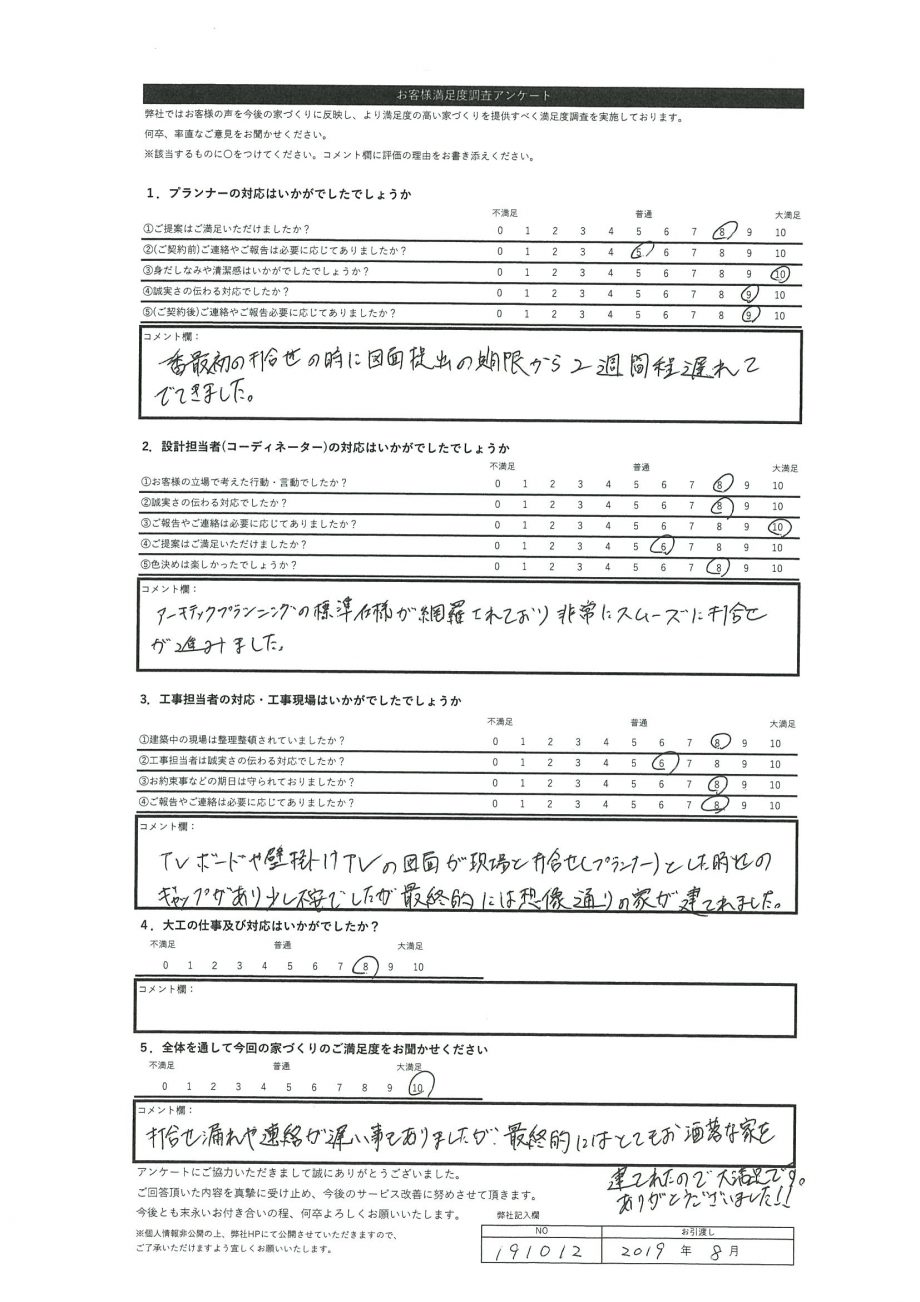 お客様満足度調査アンケート
弊社ではお客様の声を今後の家づくりに反映し、より満足度の高い家づくりを提供すべく満足度調査を実施しております。
何卒、率直なご意見をお聞かせください。
※該当するものに〇をつけてください。コメント欄に評価の理由をお書き添えください。
1．プランナーの対応はいかがでしたでしょうか
不満足 普通 大満足
①ご提案はご満足いただけましたか？ 0 1 2 3 4 5 6 7 8 9 10
②(ご契約前)ご連絡やご報告は必要に応じてありましたか？ 0 1 2 3 4 5 6 7 8 9 10
③身だしなみや清潔感はいかがでしたでしょうか？ 0 1 2 3 4 5 6 7 8 9 10
④誠実さの伝わる対応でしたか？ 0 1 2 3 4 5 6 7 8 9 10
⑤(ご契約後)ご連絡やご報告必要に応じてありましたか？ 0 1 2 3 4 5 6 7 8 9 10
コメント欄：
一番最初の打合せの時に図面提出の期限から2週間程遅れて
でてきました。
2．設計担当者(コーディネーター)の対応はいかがでしたでしょうか
不満足 普通 大満足
①お客様の立場で考えた行動・言動でしたか？ 0 1 2 3 4 5 6 7 8 9 10
②誠実さの伝わる対応でしたか？ 0 1 2 3 4 5 6 7 8 9 10
③ご報告やご連絡は必要に応じてありましたか？ 0 1 2 3 4 5 6 7 8 9 10
④ご提案はご満足いただけましたか？ 0 1 2 3 4 5 6 7 8 9 10
⑤色決めは楽しかったでしょうか？ 0 1 2 3 4 5 6 7 8 9 10
コメント欄：
アーキテックプランニングの標準仕様が網羅されており非常にスムーズに打合せ
が進みました。
3．工事担当者の対応・工事現場はいかがでしたでしょうか
不満足 普通 大満足
①建築中の現場は整理整頓されていましたか？ 0 1 2 3 4 5 6 7 8 9 10
②工事担当者は誠実さの伝わる対応でしたか？ 0 1 2 3 4 5 6 7 8 9 10
③お約束事などの期日は守られておりましたか？ 0 1 2 3 4 5 6 7 8 9 10
④ご報告やご連絡は必要に応じてありましたか？ 0 1 2 3 4 5 6 7 8 9 10
コメント欄：
TVボードや壁掛けTVの図面が現場と打合せ(プランナー)とした時の
ギャップがあり少し不安でしたが最終的には想像通りの家が建てれました。
4．大工の仕事及び対応はいかがでしたか？
不満足 普通 大満足
0 1 2 3 4 5 6 7 8 9 10
コメント欄：
5．全体を通して今回の家づくりのご満足度をお聞かせください
不満足 普通 大満足
0 1 2 3 4 5 6 7 8 9 10
コメント欄：
打合せ漏れや連絡が遅い事もありましたが、最終的にはとてもお洒落な家を
建てれたので大満足です。
ありがとうございました!!
アンケートにご協力いただきまして誠にありがとうございました。
ご回答頂いた内容を真摯に受け止め、今後のサービス改善に努めさせて頂きます。
今後とも末永いお付き合いの程、何卒よろしくお願いいたします。
※個人情報非公開の上、弊社HPにて公開させていただきますので、
ご了承いただけますよう宜しくお願いいたします。
弊社記入欄
NO お引渡し
191012 2019 年 8 月